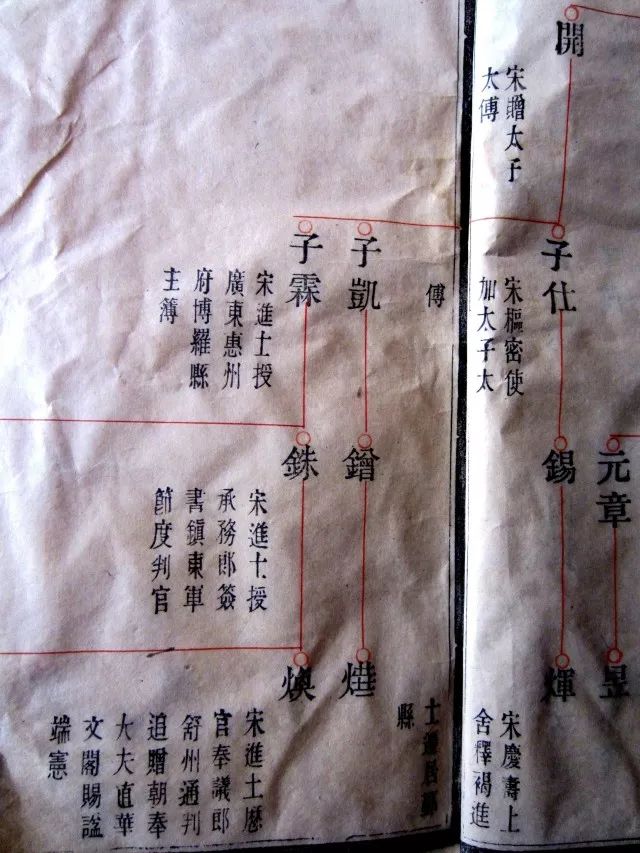 開
宋贈太子
太傅
子仕
宋樞密使
加太子太
傅
子凱
子霖
宋進士授
廣東惠州
府博羅縣
主簿
元章
錫
銖
宋進士授
承務郎簽
書鎮東軍
節度判官
昱
煇
宋慶壽上
舍釋褐進
士遷居
縣
煥
宋進士歷
官奉議郎
舒州通判
追贈朝奉
大夫直華
文閣賜謚
端憲